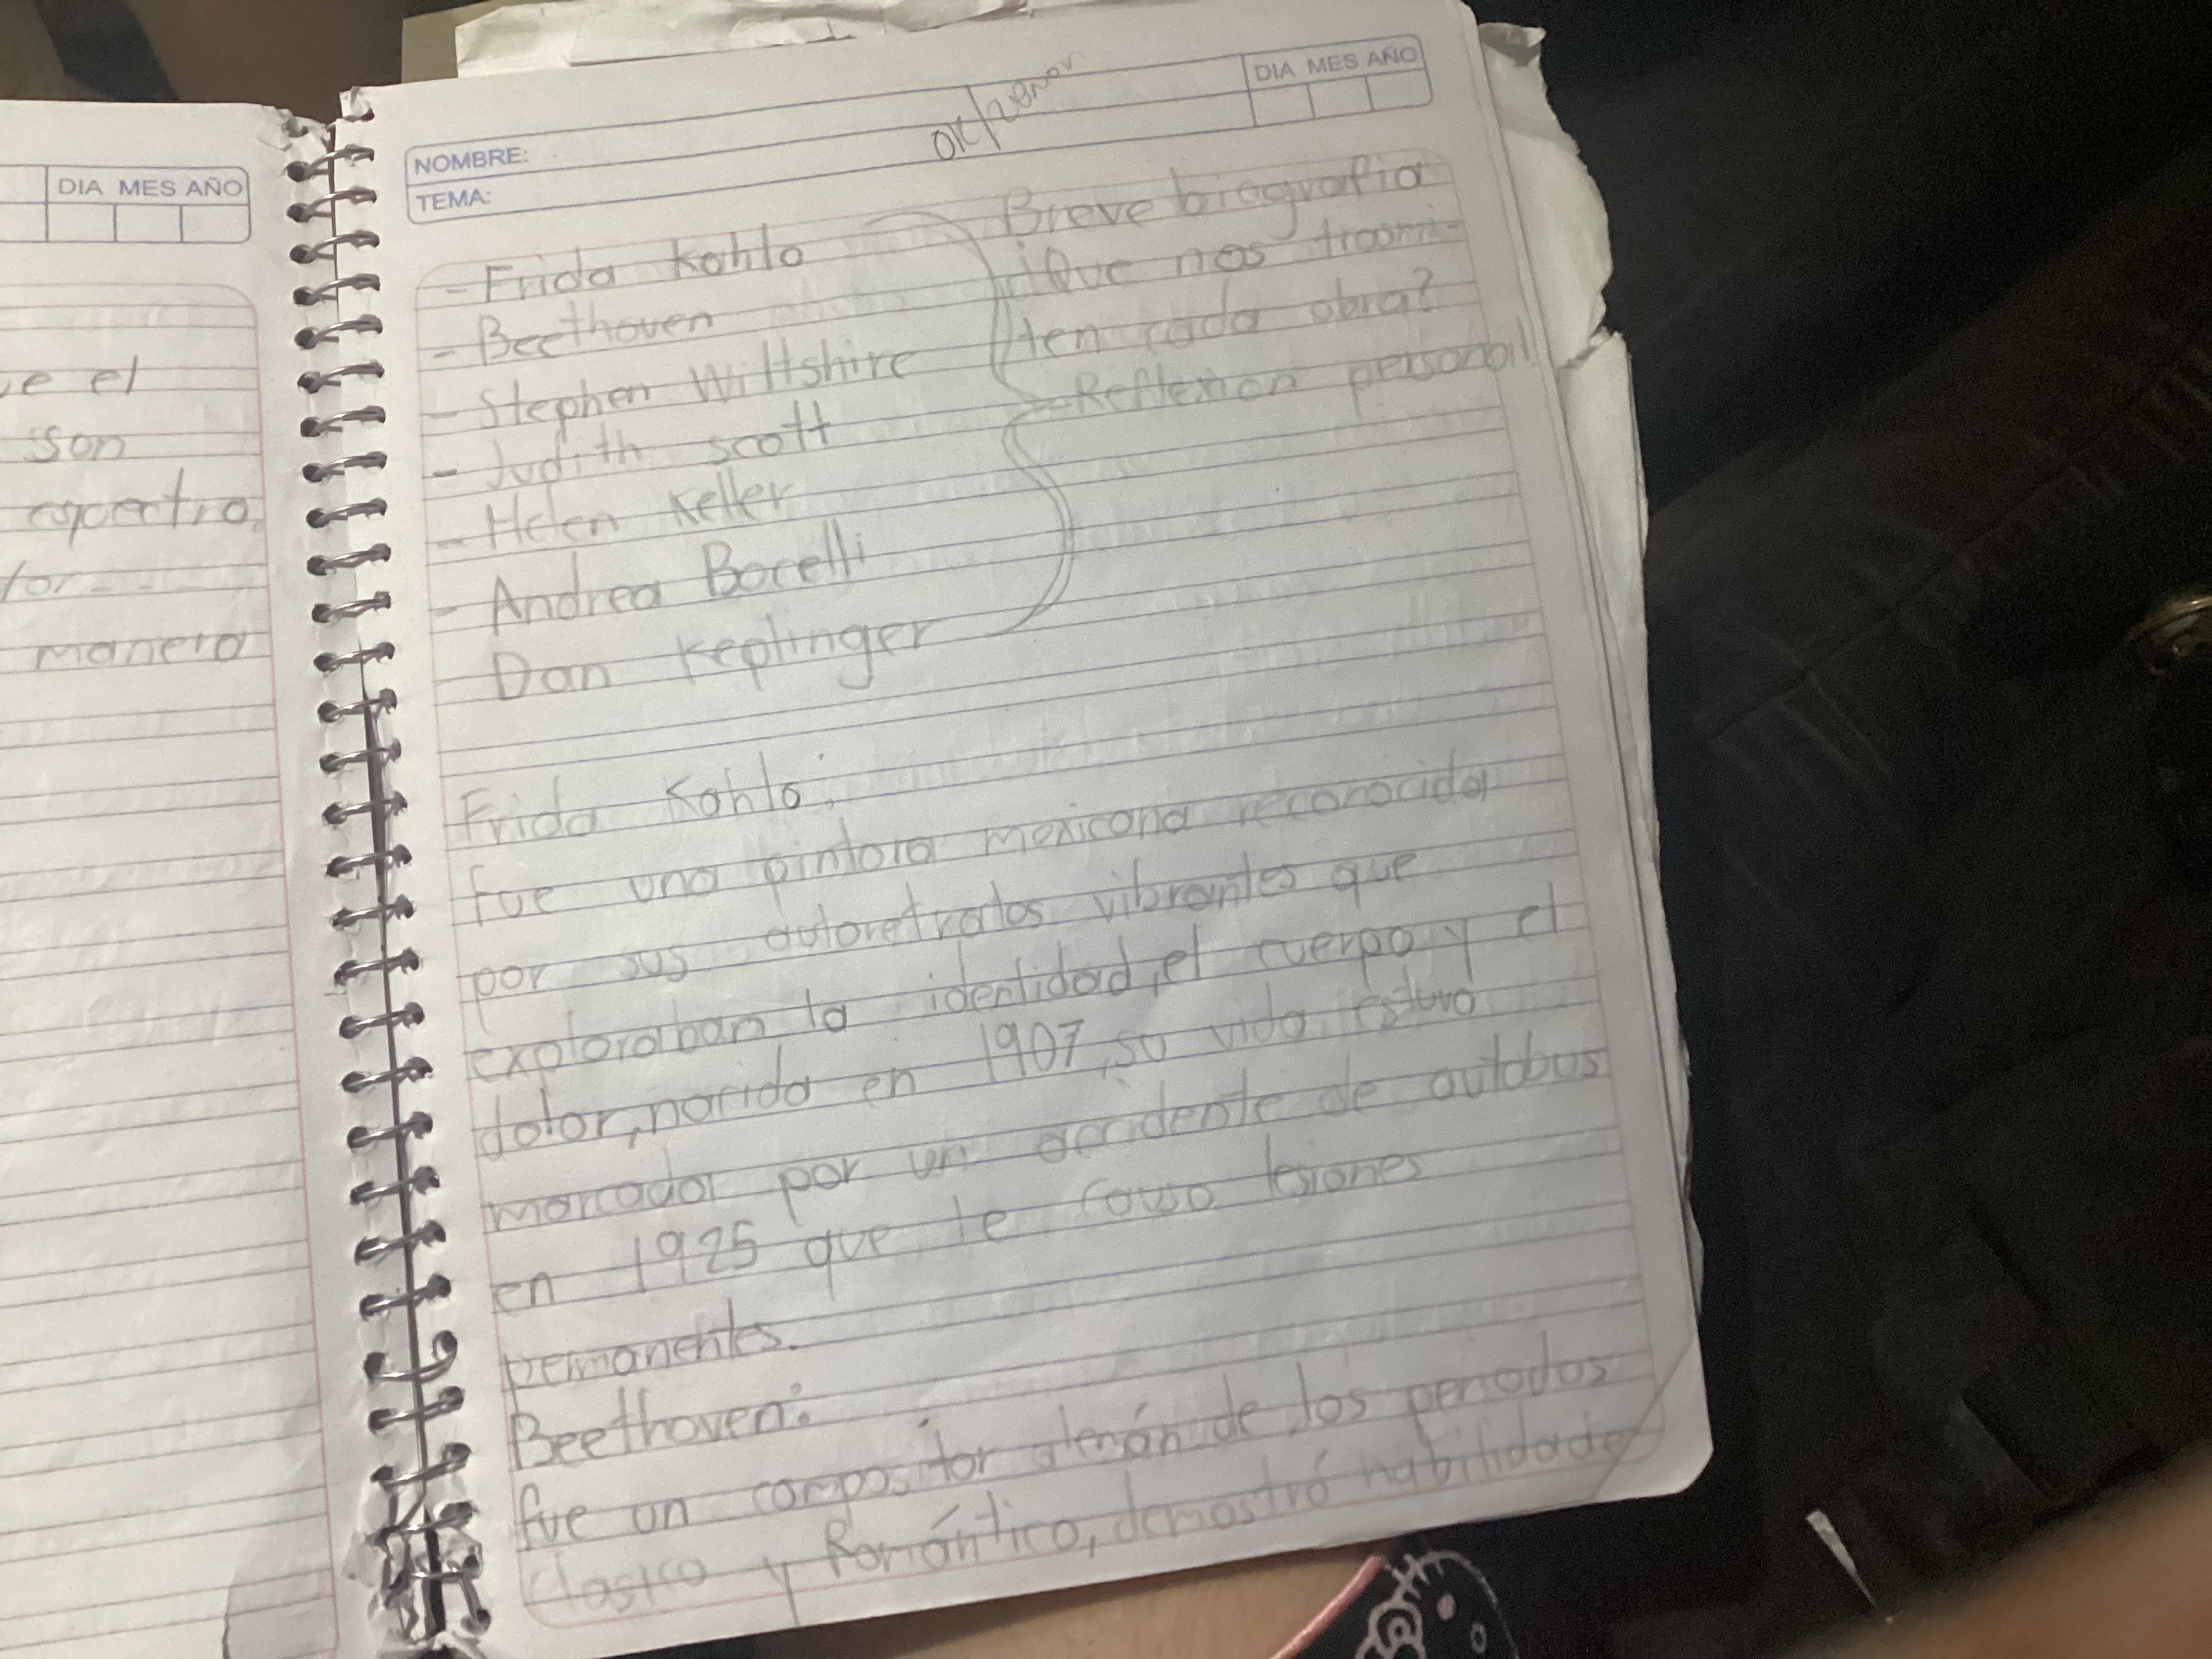 DIA MES AÑO
ve el
son
espectro.
manera
DIA MES AÑO
NOMBRE:
TEMA:
OK
- Frida Kahlo
- Beethoven
- Stephen Wiltshire
- Judith scott
- Helen Keller
- Andrea Bocelli
Dan Keplinger
Breve biografia
¿Que nos trasmi-
ten cada obra?
- Reflexion personal
Frida Kahlo:
fue una pintora mexicana reconocida
por sus autoretratos vibrantes que
exploraban la identidad, el cuerpo y el
dolor, nacida en 1907, su vida estuvo
marcador por un accidente de autobus
en 1925 que le causo lesiones
pemanentes.
Beethoven:
fue un compositor alemán de los periodos
Clasico y Romántico, demostró habilidade